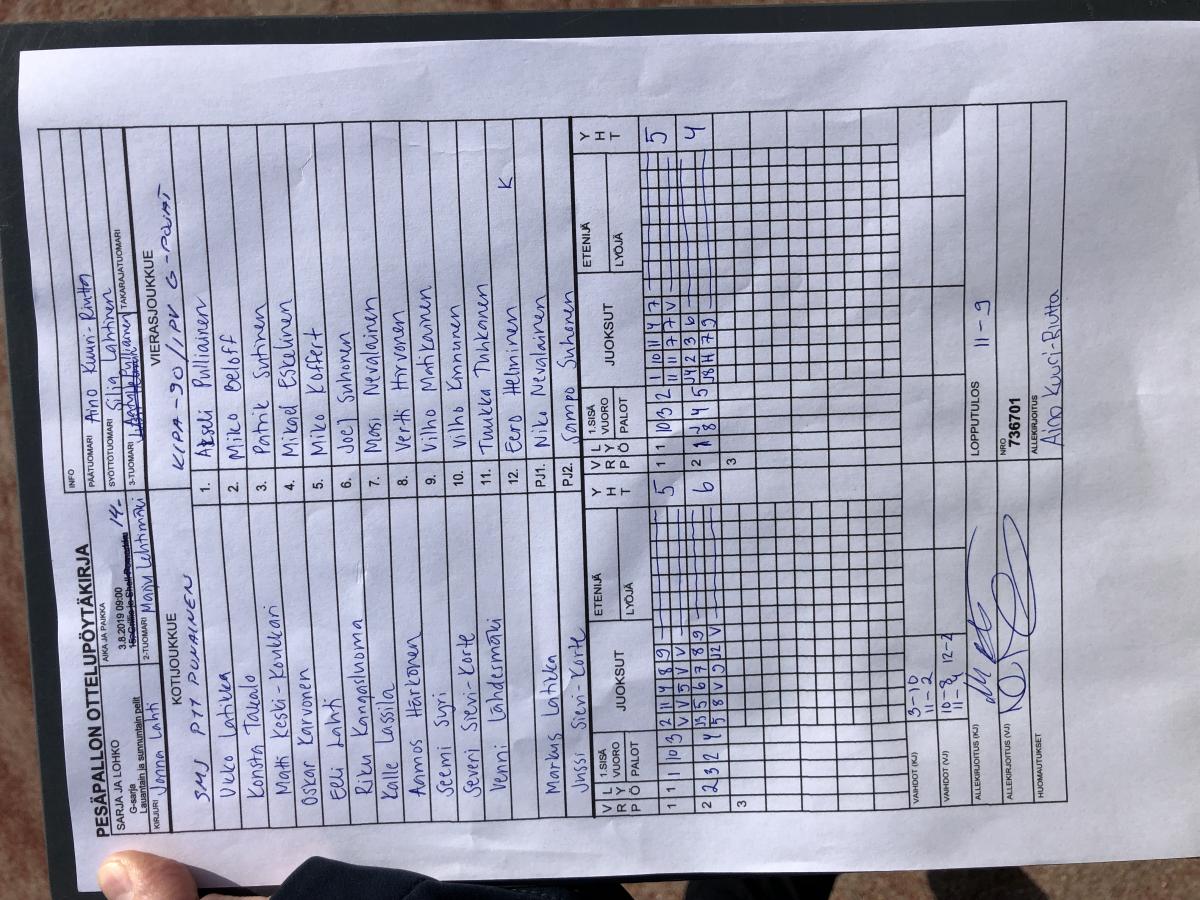 PESÄPALLON OTTELUPÖYTÄKIRJA
SARJA JA LOHKO
G-sarja
Lauantain ja sunnuntain pelit
AIKA JA PAIKKA
3.8.2019 09:00 14-
INFO
PÄÄTUOMARI Aino Kuuri-Riutta
SYÖTTÖTUOMARI Silja Lahtinen
KIRJURI Janna Lahti
2-TUOMARI Manu Lehtimäki
3-TUOMARI
TAKARAJATUOMARI
KOTIJOUKKUE
VIERASJOUKKUE
SMJ PTT PUNAINEN
KIPA-90/IPV G-POJAT
Veko Latikka
1. Akseli Pulliainen
Konsta Takealo
2. Miko Beloff
Matti Keski-Koukkari
3. Patrik Sutinen
Oskar Karvonen
4. Mikael Eskelinen
Eeli Lahti
5. Miko Koffert
Riku Kangasluoma
6. Joel Suhonen
Kalle Lassila
7. Masi Nevalainen
Aamos Harkonen
8. Vertti Hirvonen
Seemi Syri
9. Vilho Matikainen
Severi Sieni-Korte
10. Vilho Kinnunen
Venni Lähdesmäki
11. Tuukka Tuhkanen
12. Eero Helminen K
Markus Latikka
PJ1. Niko Nevalainen
Jussi Sieni-Korte
PJ2. Sampo Suhonen
VRP LYÖ 1.SISÄ VUORO PALOT JUOKSUT ETENIJÄ LYÖJÄ YHT
VRP LYÖ 1.SISÄ VUORO PALOT JUOKSUT ETENIJÄ LYÖJÄ YHT
1 1 1 10 3 2 11 4 8 9 5
V V 5 V V
1 1 10 3 2 1 10 11 4 7 5
11 11 7 7 V
2 2 3 2 4 6
2 8 4 5 4
3
3
VAIHDOT (KJ) 3-10
11-2
VAIHDOT (VJ) 10-8 12-2
11-4
ALLEKIRJOITUS (KJ)
LOPPUTULOS 11-9
ALLEKIRJOITUS (VJ)
NRO
736701
HUOMAUTUKSET
ALLEKIRJOITUS
Aino Kuuri-Riutta